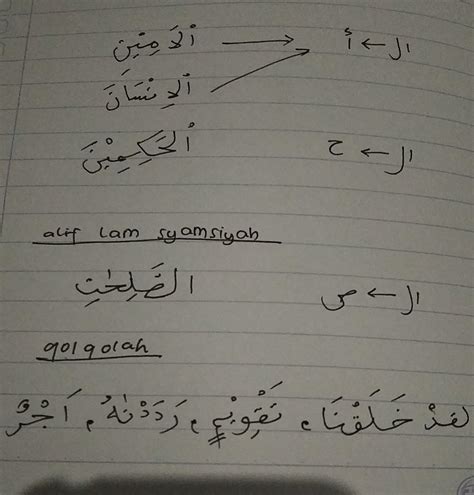 ال ← أ ← اْلاَمِيْنِ
اْلاِنْسَانَ
ال ← ح اْلحَكِمِيْنَ
alif lam syamsiyah
ال ← ص الصَّلِحٰتِ
qolqolah
لقدْ خَلَقْنَا، تَقْوِيْمٍ، رَدَدْنٰهُ، اَجْرٌ